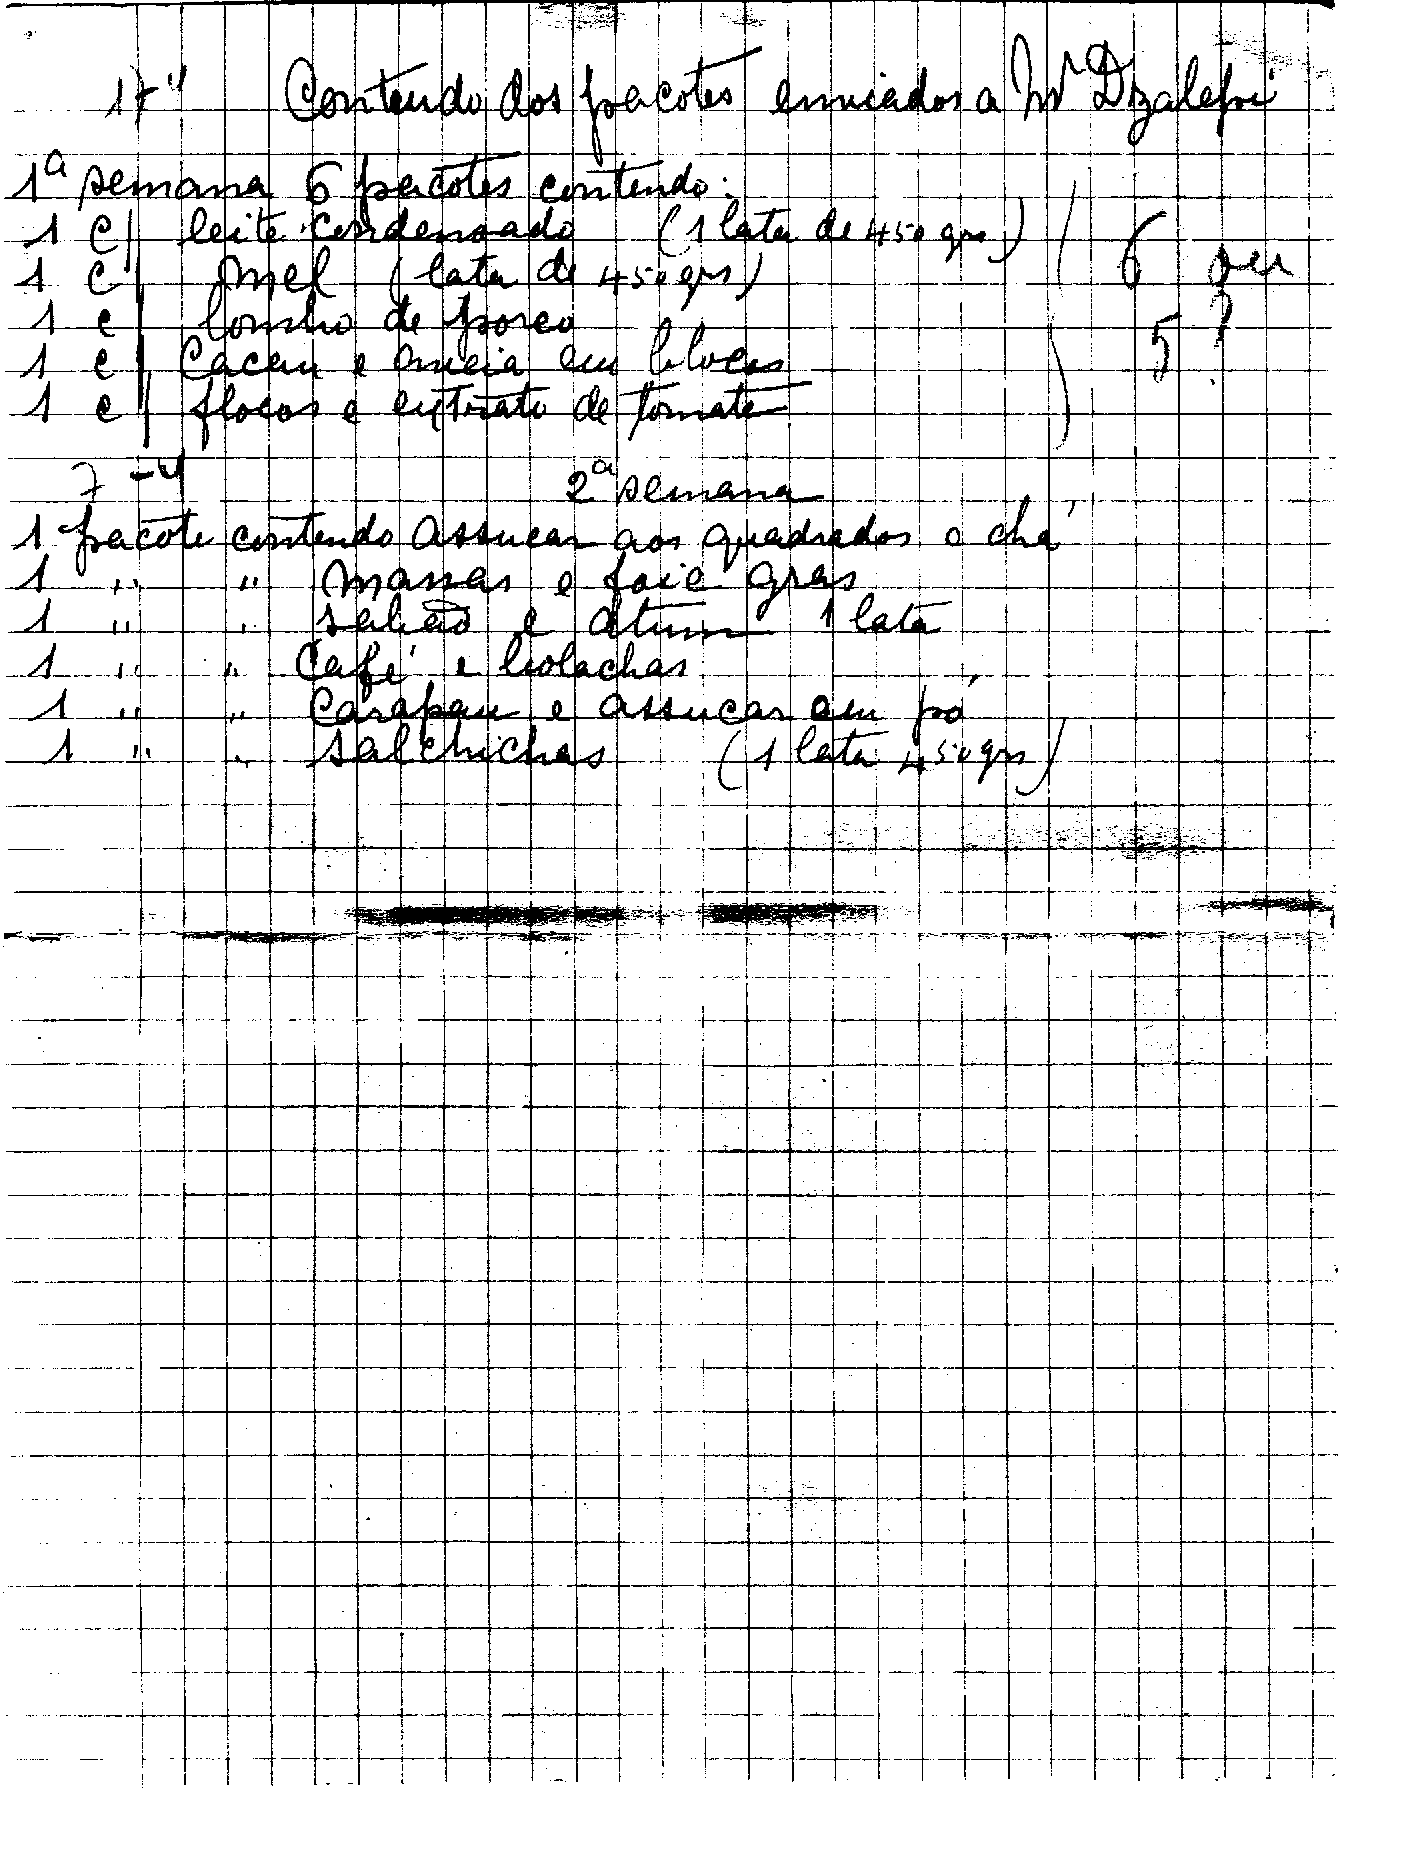 17-4 Conteudo dos pacotes enviados a Mr Dzalepoi
1ª semana 6 pacotes contendo:
1 c/ leite condensado (1 lata de 450 grs)
1 c/ mel (lata de 450 grs)
1 c/ lombo de porco
1 c/ Cacau e aveia em blocos
1 c/ flocos e extrato de tomate
6 ou
5 ?
7-4 2ª semana
1 pacote contendo assucar aos quadrados e chá
1 " " massas e foie gras
1 " " sabão e atum 1 lata
1 " " Café e bolachas
1 " " Carapau e assucar em pó
1 " " salchichas (1 lata 450 grs)